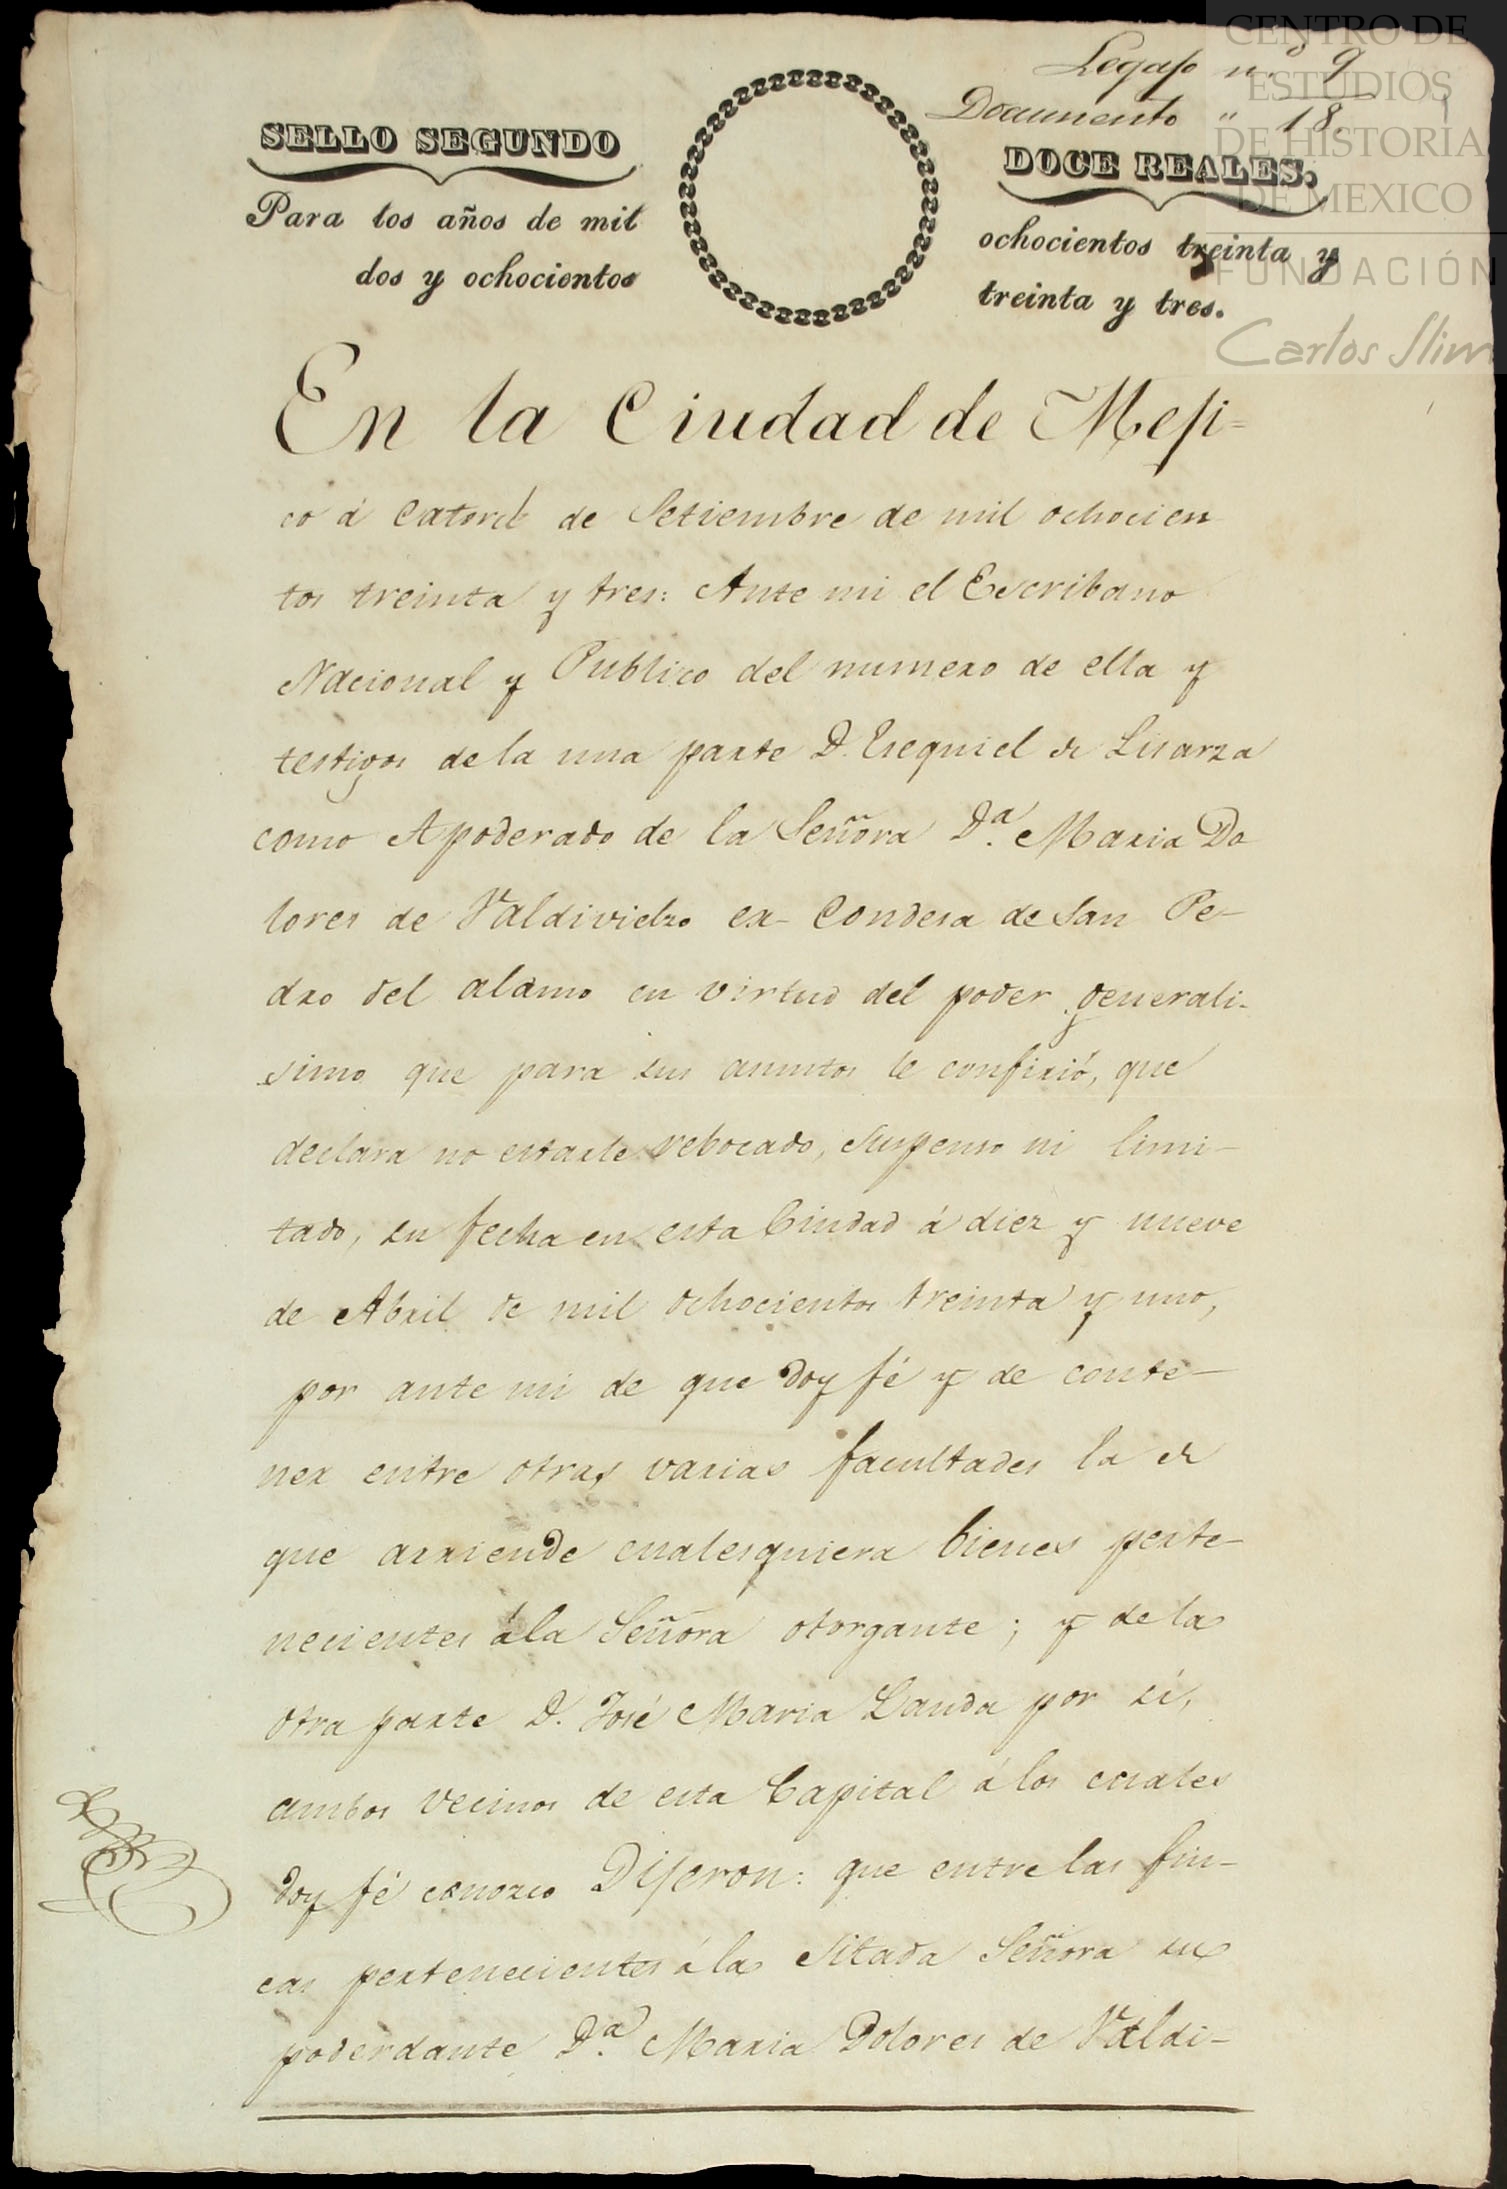 Legajo n.º 9
Documento " 18.
1
CENTRO DE
ESTUDIOS
DE HISTORIA
DE MEXICO
FUNDACIÓN
Carlos Slim
SELLO SEGUNDO
DOCE REALES.
Para los años de mil
ochocientos treinta y
dos y ochocientos
treinta y tres.
En la Ciudad de Meji=
co á Catorce de Setiembre de mil ochocien
tos treinta y tres: Ante mi el Escribano
Nacional y Publico del numero de ella y
testigos de la una parte D. Esequiel de Lisarza
como Apoderado de la Señora D.ª Maria Do
lores de Valdivielzo ex-Condesa de San Pe-
dro del alamo en virtud del poder generali-
simo que para sus asuntos le confirió, que
declara no estarle rebocado, suspenso ni limi-
tado, su fecha en esta Ciudad á diez y nueve
de Abril de mil ochocientos treinta y uno,
por ante mi de que doy fé y de conte-
ner entre otras varias facultades la de
que arriende cualesquiera bienes perte-
necientes á la Señora otorgante; y de la
otra parte D. José Maria Landa por sí,
ambos vecinos de esta Capital á los cuales
doy fé conozco Dijeron: que entre las fin-
cas pertenecientes á la Sitada Señora su
poderdante D.ª Maria Dolores de Valdi-